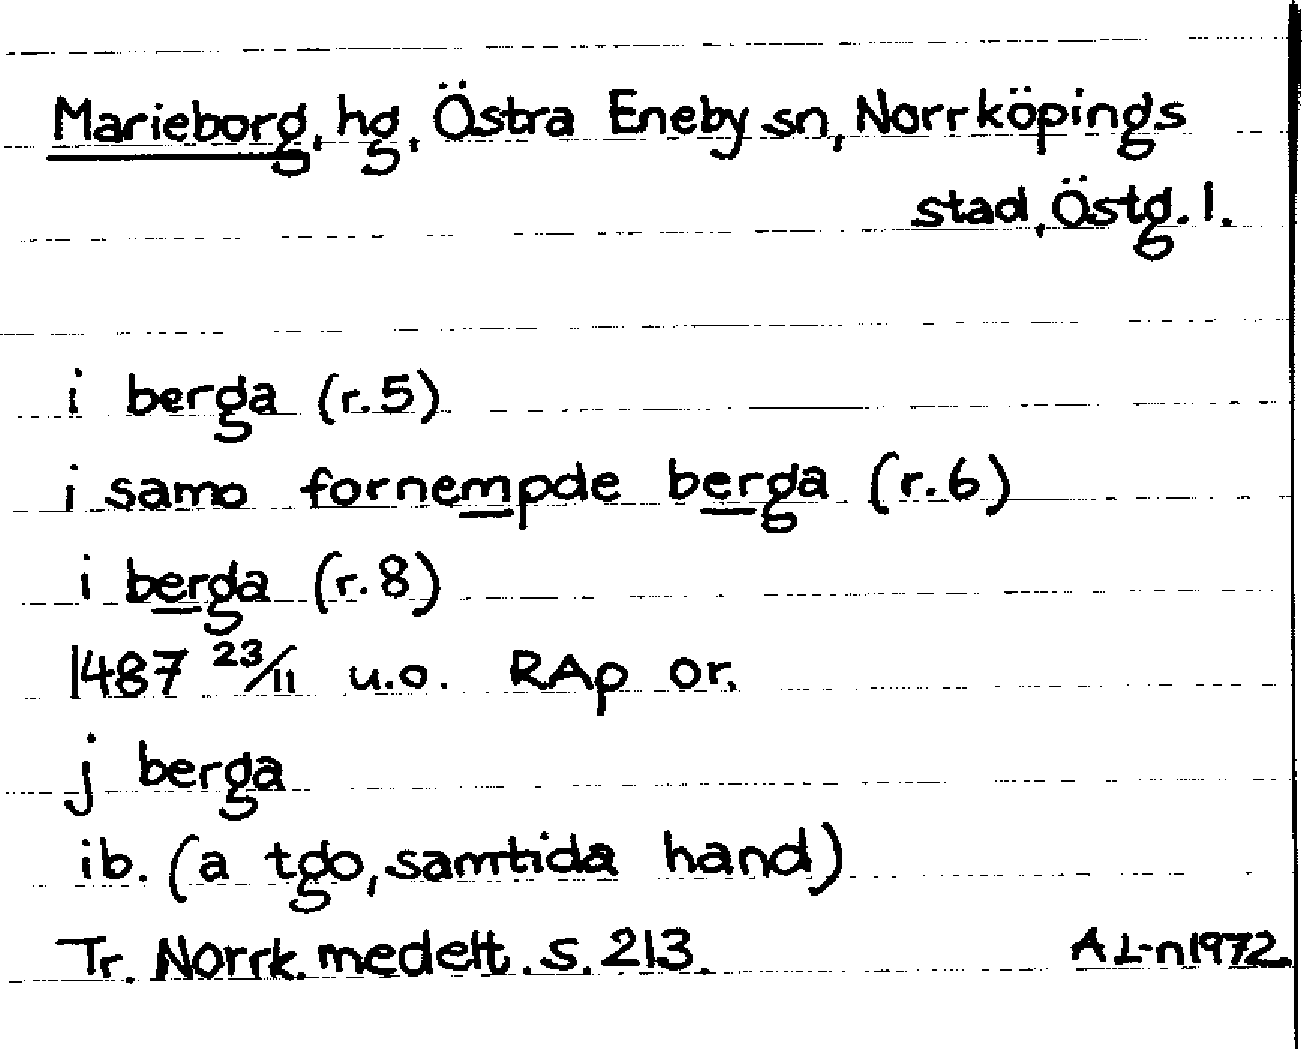 Marieborg, hg, Östra Eneby sn, Norrköpings
stad, Östg. l.
i berga (r.5)
i samo fornempde berga (r.6)
i berga (r.8)
1487 23/11 u.o. RAp or.
j berga
ib. (a tgo, samtida hand)
Tr. Norrk. medelt. s. 213. A L-n 1972